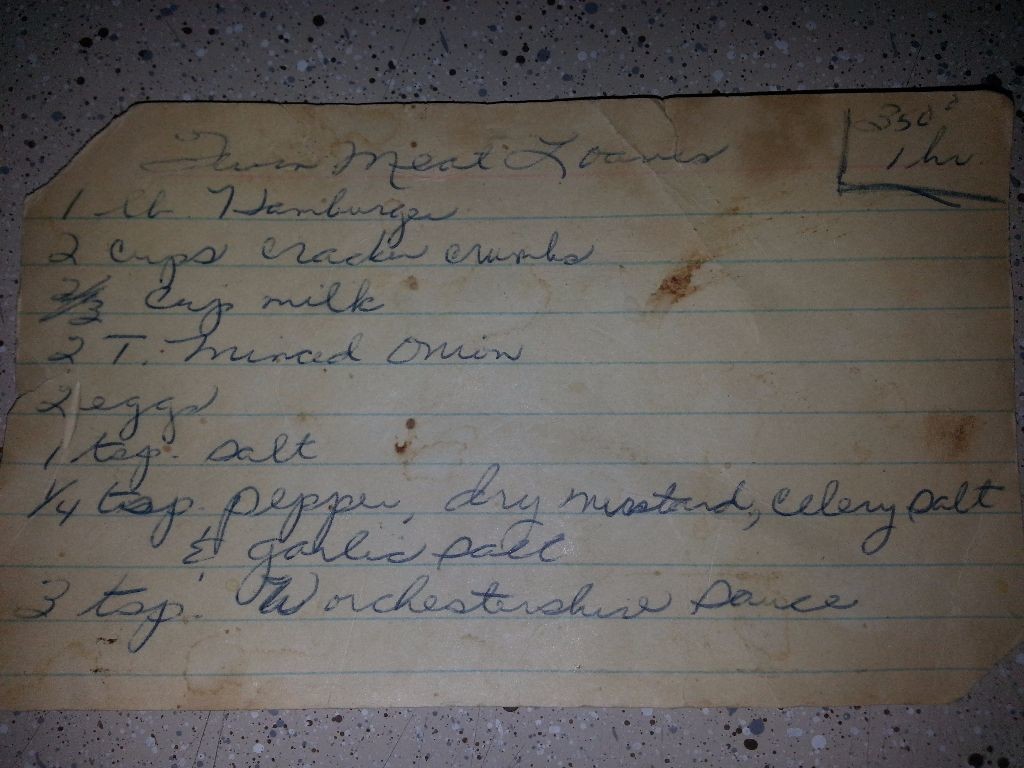 Twin Meat Loaves
350°
1 hr
1 lb. Hamburger
2 cups cracker crumbs
2/3 cup milk
2 T. minced onion
2 eggs
1 tsp. salt
1/4 tsp. pepper, dry mustard, celery salt
& garlic salt
3 tsp. Worchestershire sauce